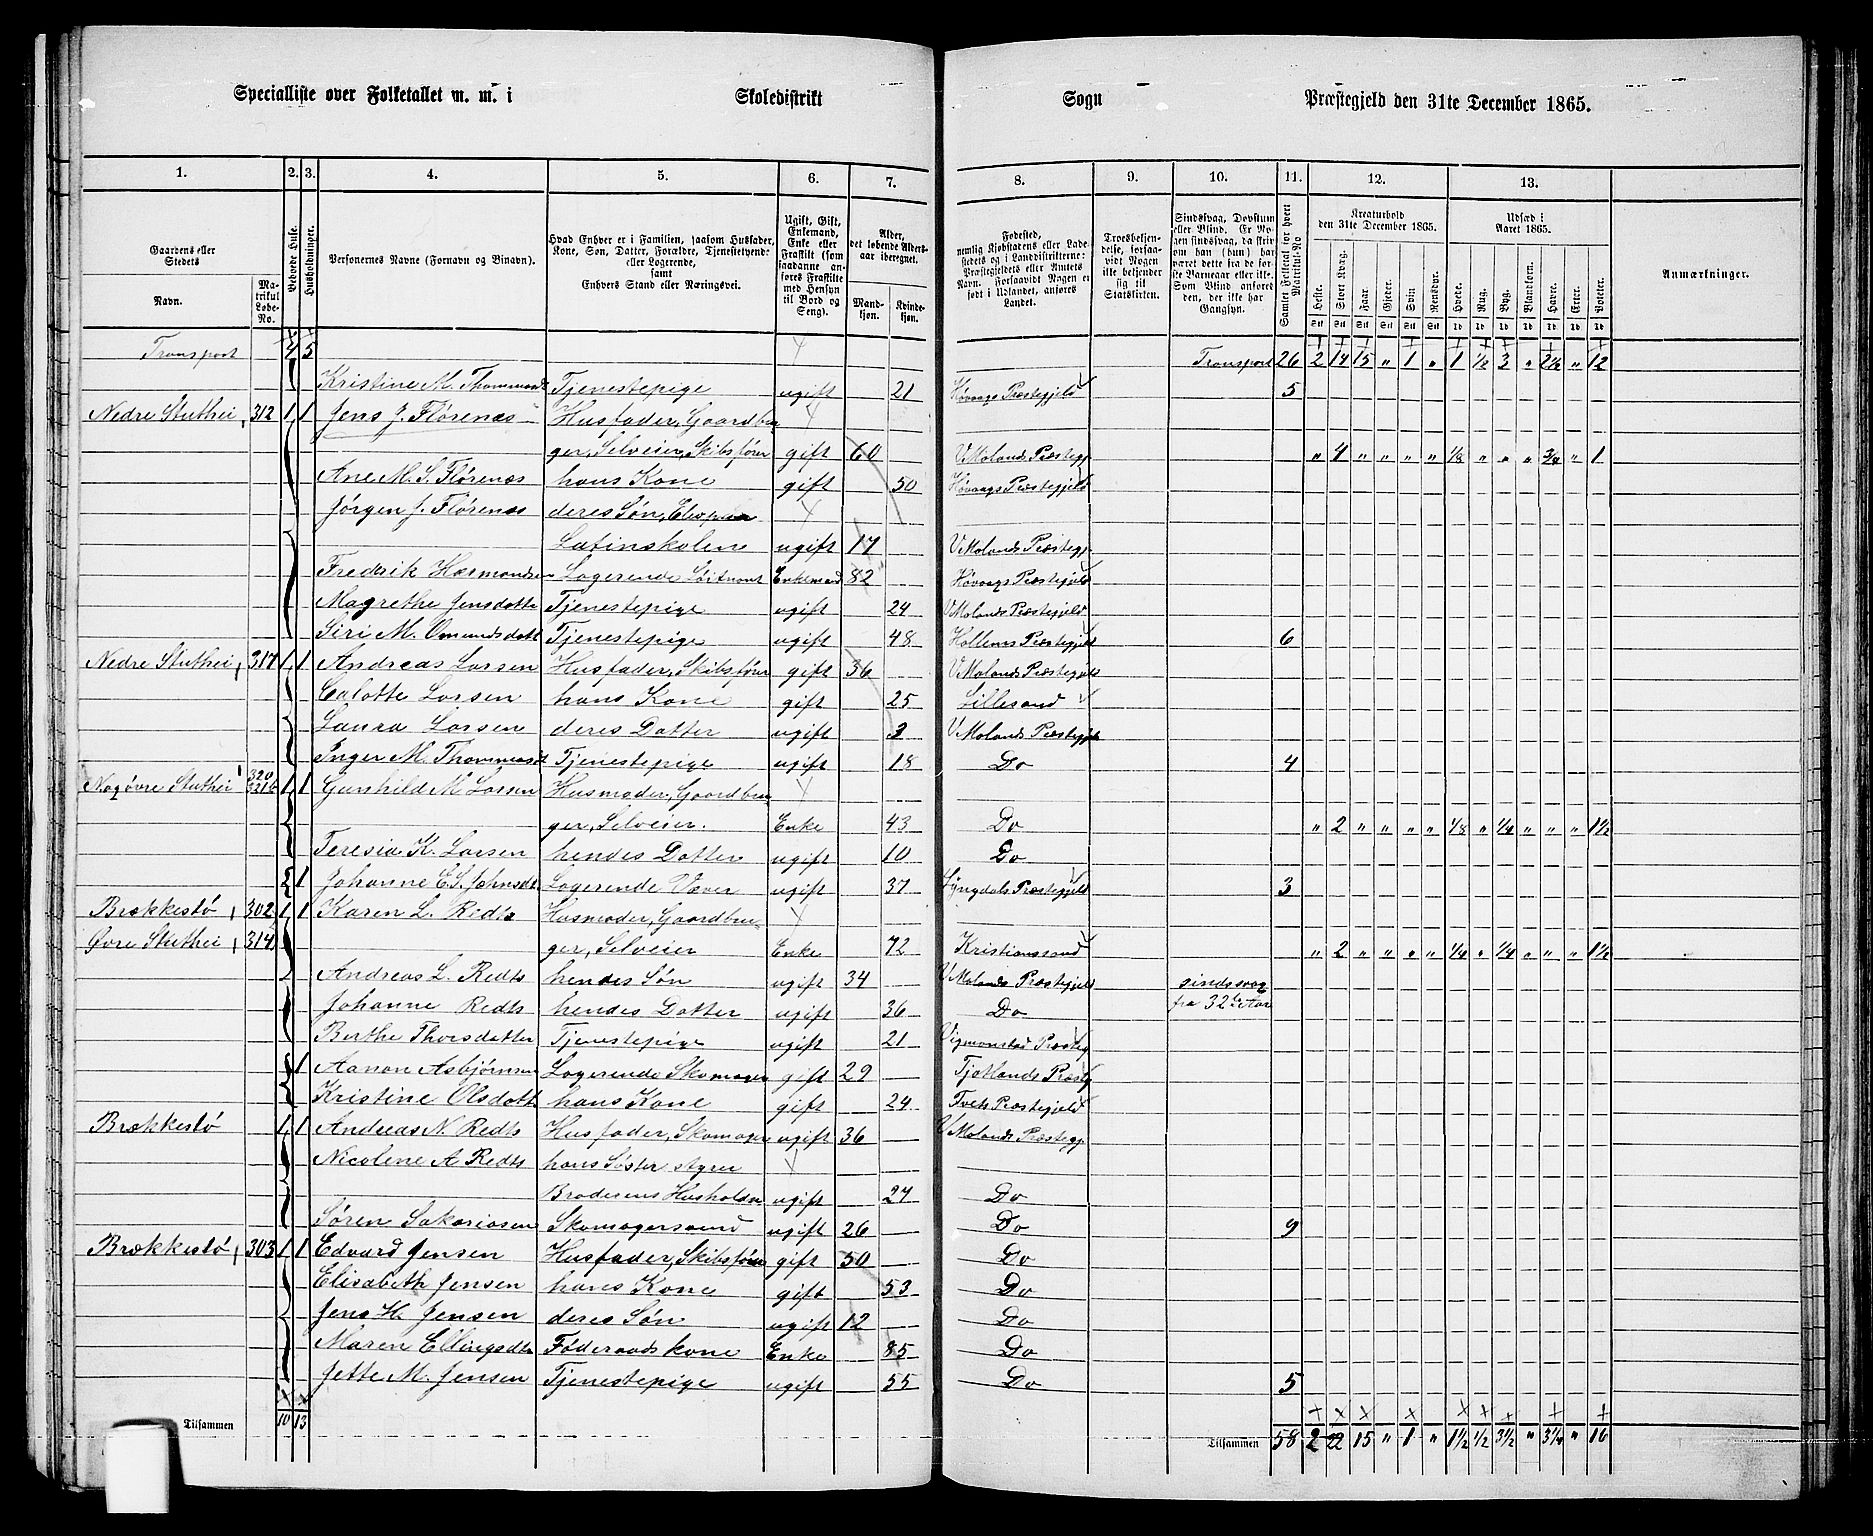 Specialliste over Folketallet m. m. i Skoledistrikt Sogn Præstegjeld den 31te December 1865.
1. 2. 3. 4. 5. 6. 7. 8. 9. 10. 11. 12. 13.
Gaardens eller Stedets Navn. Matrikul Løbe-No. Beboede Huse. Husholdninger. Personernes Navne (Fornavn og Binavn). Hvad Enhver er i Familien, saasom Husfader, Kone, Søn, Datter, Forældre, Tjenestetyende eller Logerende, samt Enhvers Stand eller Næringsvei. Ugift, Gift, Enkemand, Enke eller Fraskilt (som saadanne anføres Fraskilte med Hensyn til Bord og Seng). Alder, det løbende Alders-aar iberegnet. Mandkjøn. Kvindekjøn.
Fødested, nemlig Kjøbstadens eller Ladestedets eller i Landdistrikterne: Præstegjeldets eller Amtets Navn. Forsaavidt Nogen er født i Udlandet, anføres Landet. Troesbekjendelse, forsaavidt Nogen ikke bekjender sig til Statskirken. Sindssvag, Døvstum eller Blind. Er Nogen sindssvag, da skrives om han (hun) har været dette fra de første Barneaar eller ikke. Som Blind anføres den, der ikke har Gangsyn. Samlet Folketal for hvert Matrikul-No
Kreaturhold den 31te December 1865. Heste. Stort Kvæg. Faar. Gjeder. Svin. Rensdyr. Udsæd i Aaret 1865. Hvede. Rug. Byg. Blandkorn. Havre. Erter. Poteter. Anmærkninger.
Transport 4 5 Transport 26 2 14 15 " 1 " 1 ½ 3 " 2¼ " 12
Kristine M. Tjenestepige ugift 21 Høvaags Præstegjeld 5
Nedre Stuthei, 312 1 1 Jens J. Flørenæs Husfader, Gaardbru
ger, Selveier, Skibsfører gift 60 V Molands Præstegj. " 4 " " " " ⅛ " " " ¾ " 1
Ane M. S. Flørenæs hans Kone gift 50 Høvaags Præstegjeld
Jørgen J. Flørenæs deres Søn,
Latinskolen ugift 17 V Molands Præstegj.
Fredrik Logerende Enkemand 82 Høvaags Præstegjeld
Magrethe Jensdatte Tjenestepige ugift 24 V Molands Præstegjeld
Siri M. Omundsdatt Tjenestepige ugift 48 Præstegjeld 6
Nedre Stuthei, 317 1 1 Andreas Larsen Husfader, Skibsfører gift 36 V Molands Præstegjeld
Calotte Larsen hans Kone gift 25 Lillesand
Laura Larsen deres Datter ugift 3 V Molands Præstegj
Inger M. Tjenestepige ugift 18 Do 4
Stuthei 320 1 1 Gunhild M Larsen Husmoder, Gaardbru
ger, Selveier. Enke 43 Do " 2 " " " " ⅛ " ¼ " " " 1½
Teresia K. Larsen hendes Datter ugift 10 Do
2 1 Johanne Logerende Væver ugift 37 Lyngdals Præstegjeld 3
Brækkestø, 302 1 1 Karen L. Redts Husmoder, Gaardbru
Øvre Stuthei, 314 ger, Selveier Enke 72 Kristianssand " 2 " " " " ¼ " ¼ " " " 1½
Andreas L. Redts hendes Søn ugift 34 V Molands Præstegjeld sindssvag
Johanne Redts hendes Datter ugift 36 Do fra 32te Aar
Berthe Thorsdatter Tjenestepige ugift 21 Præsteg
1 Aanon Asbjørnsen Logerende Skomager gift 29 Præstg
Kristine Olsdatt hans Kone gift 24 Præstegjeld
Brækkestø 1 1 Andreas N. Redts Husfader, Skomager ugift 36 V Molands Præstegj.
Nicolene A Redts hans Søster styrer
Broderens Husholdn ugift 24 Do
Søren Sakariasen Skomagersvend ugift 26 Do 9
Brækkestø, 303 1 1 Edvard Jensen Husfader, Skibsfører gift 50 Do
Elisabeth Jensen hans Kone gift 53 Do
Jens H. Jensen deres Søn ugift 12 Do
Maren Ellingsdtr Føderaadskone Enke 85 Do
Jette M. Jensen Tjenestepige ugift 55 Do 5
Tilsammen 10 13 Tilsammen 58 2 22 15 " 1 " 1½ ½ 3½ " 3¼ " 16